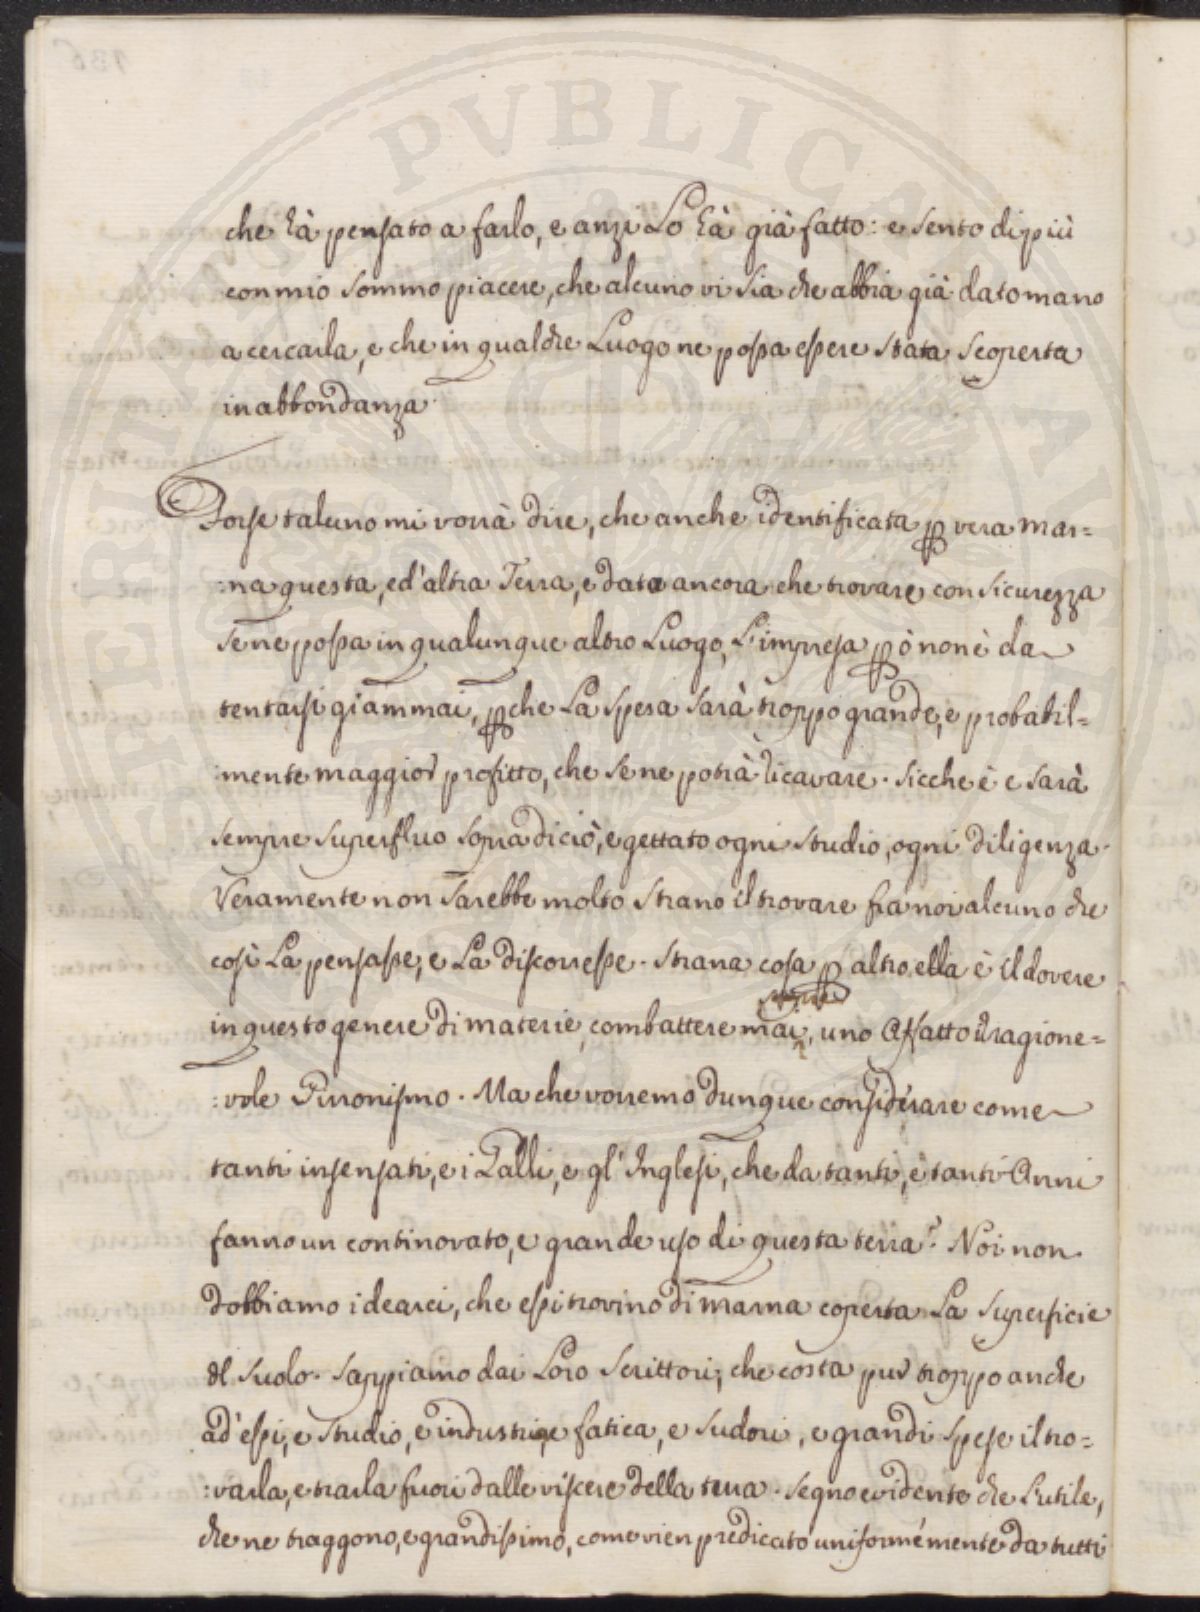 che hà pensato a farlo, e anzi Lo hà già fatto: e sento di più
con mio sommo piacere, che alcuno vi sia che abbia già dato mano
a cercarla, e che in qualche Luogo ne possa essere stata scoperta
in abbondanza.
Forse taluno mi vorrà dire, che anche identificata ꝑ vera mar=
:na questa, ed'altra Terra, e data ancora che trovare con sicurezza
se ne possa in qualunque altro Luogo, L'impresa ꝑò non è da
tentarsi giammai, ꝑche La spesa sarà troppo grande, e probabil=
:mente maggior profitto, che se ne potrà ricavare. Sicche è e sarà
sempre superfluo sopra di ciò, e gettato ogni studio, ogni diligenza.
Veramente non sarebbe molto strano il trovare fra noi alcuno che
così La pensasse, e La discorresse. Strana cosa ꝑ altro ella è il dovere
in questo genere di materie combattere mai, uno affatto irragione=
:vole Pirronismo. Ma che vorremo dunque considerare come
tanti insensati, e i Galli, e gl'Inglesi, che da tanti, e tanti Anni
fanno un continovato, e grande uso di questa terra? Noi non
dobbiamo idearci, che essi trovino di marna coperta La superficie
del suolo. Sappiamo dai Loro Scrittori, che costa pur troppo anche
ad'essi, e studio, e industria, e fatica, e sudori, e grandi spese il tro=
:varla, e trarla fuori dalle viscere della terra. Segno evidente che L'utile,
che ne traggono, e grandissimo, come vien predicato uniformemente da tutti
PUBLICA